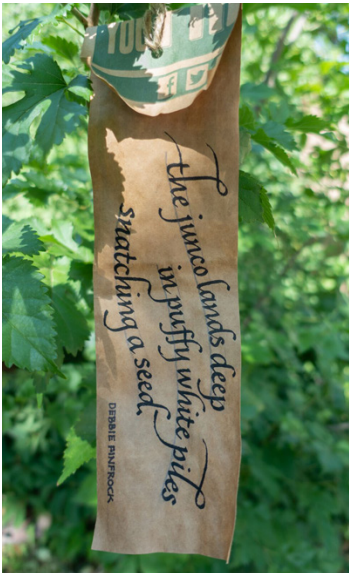 YOUR
the junco lands deep
in puffy white piles
snatching a seed.
DEBBIE PINFROCK